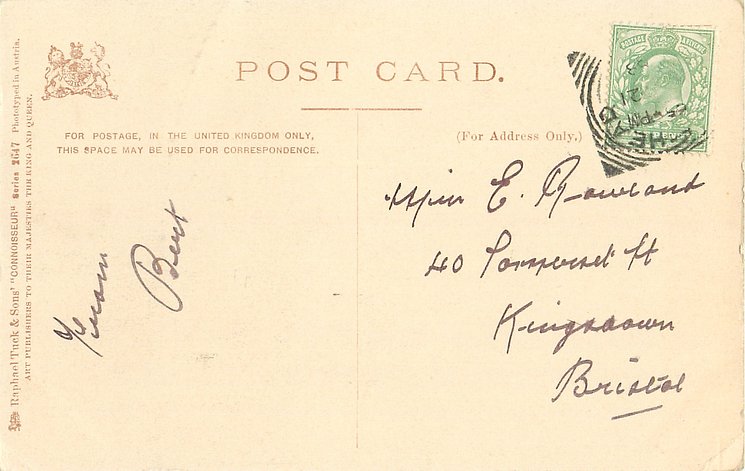 POST CARD.
FOR POSTAGE, IN THE UNITED KINGDOM ONLY,
THIS SPACE MAY BE USED FOR CORRESPONDENCE.
(For Address Only.)
POSTAGE & REVENUE
HEAD
21
PM
Miss E. Rowland
40 Somerset St
Kingsdown
Bristol
From
Bert
Raphael Tuck & Sons' "CONNOISSEUR" Series 2647 Phototyped in Austria.
ART PUBLISHERS TO THEIR MAJESTIES THE KING AND QUEEN.